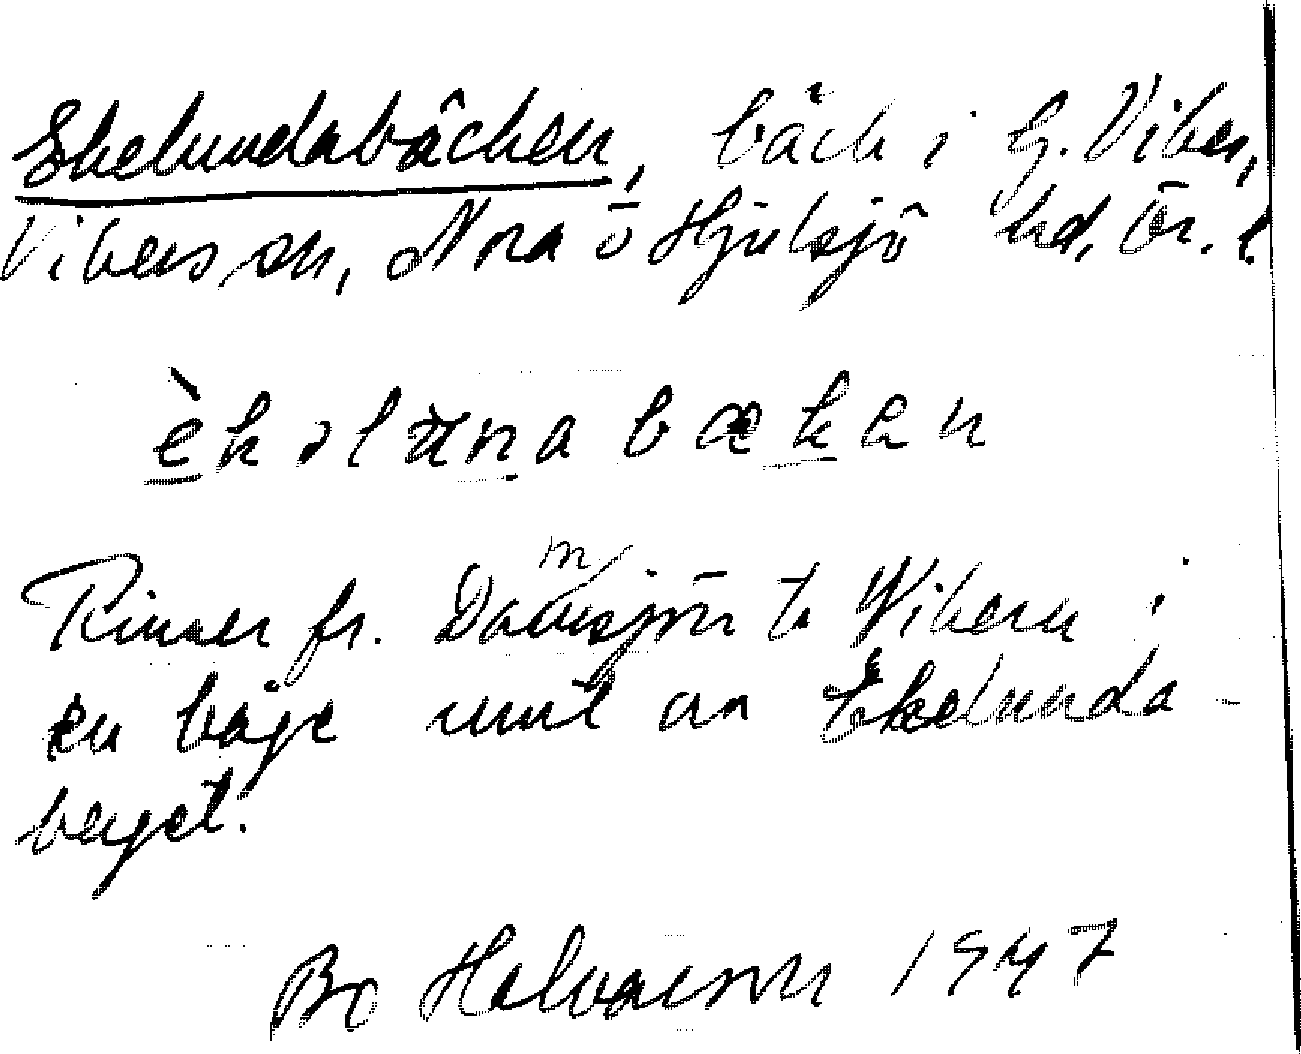 Ekelundabäcken, bäck i G. Viker,
Vikers sn, Nora o Hjulsjö hd, Ör. l.
èkəlùnabækən
Rinner fr. Dammsjön t. Vikern i
en båge runt om Ekelunda-
berget.
Bo Halvarson 1947